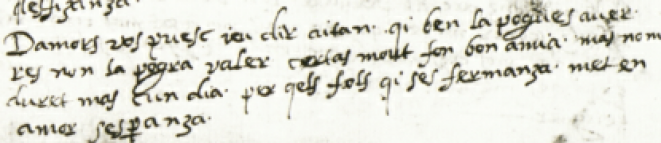 Damors vos puesc ieu dir aitan. qi ben la pogues aver.
res non la pogra valer certas mout fon bon amia. mas nom
duret mas cun dia. per qels fols qi ses fermanza. met en
amor sesperanza.